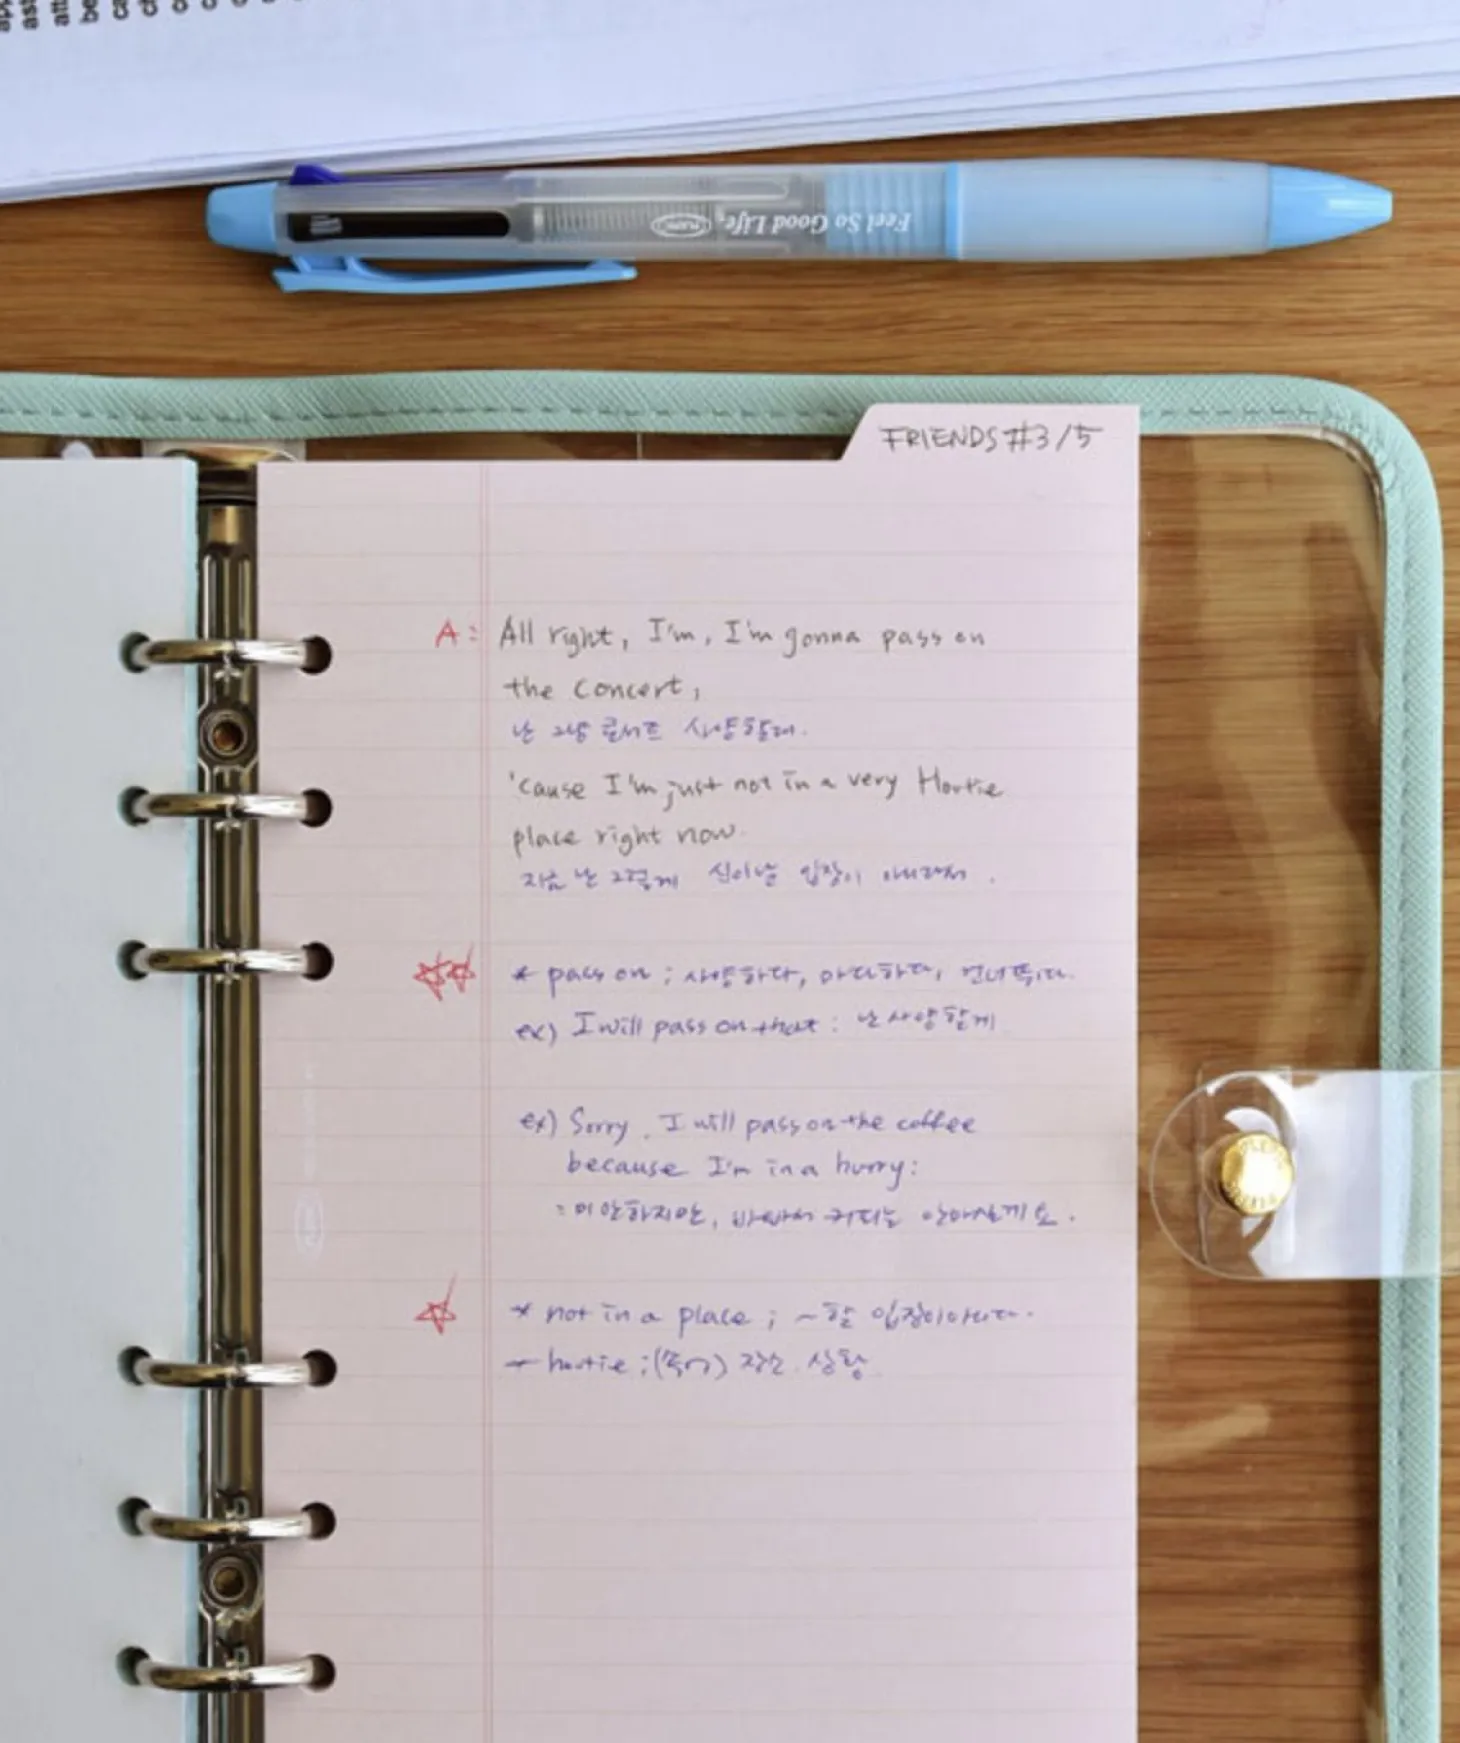 FRIENDS #3/5
Feel So Good Life.
A: All right, I'm, I'm gonna pass on
the concert,
난 그냥 콘서트 사양할래.
'cause I'm just not in a very Hootie
place right now.
지금 난 그렇게 신이날 입장이 아니라서.
* pass on ; 사양하다, 마다하다, 건너뛰다.
ex) I will pass on that : 난 사양할게
ex) Sorry. I will pass on the coffee
because I'm in a hurry:
: 미안하지만, 바빠서 커피는 안마실게요.
* not in a place ; ~할 입장이아니다.
* hootie ;(속어) 장소. 상황.